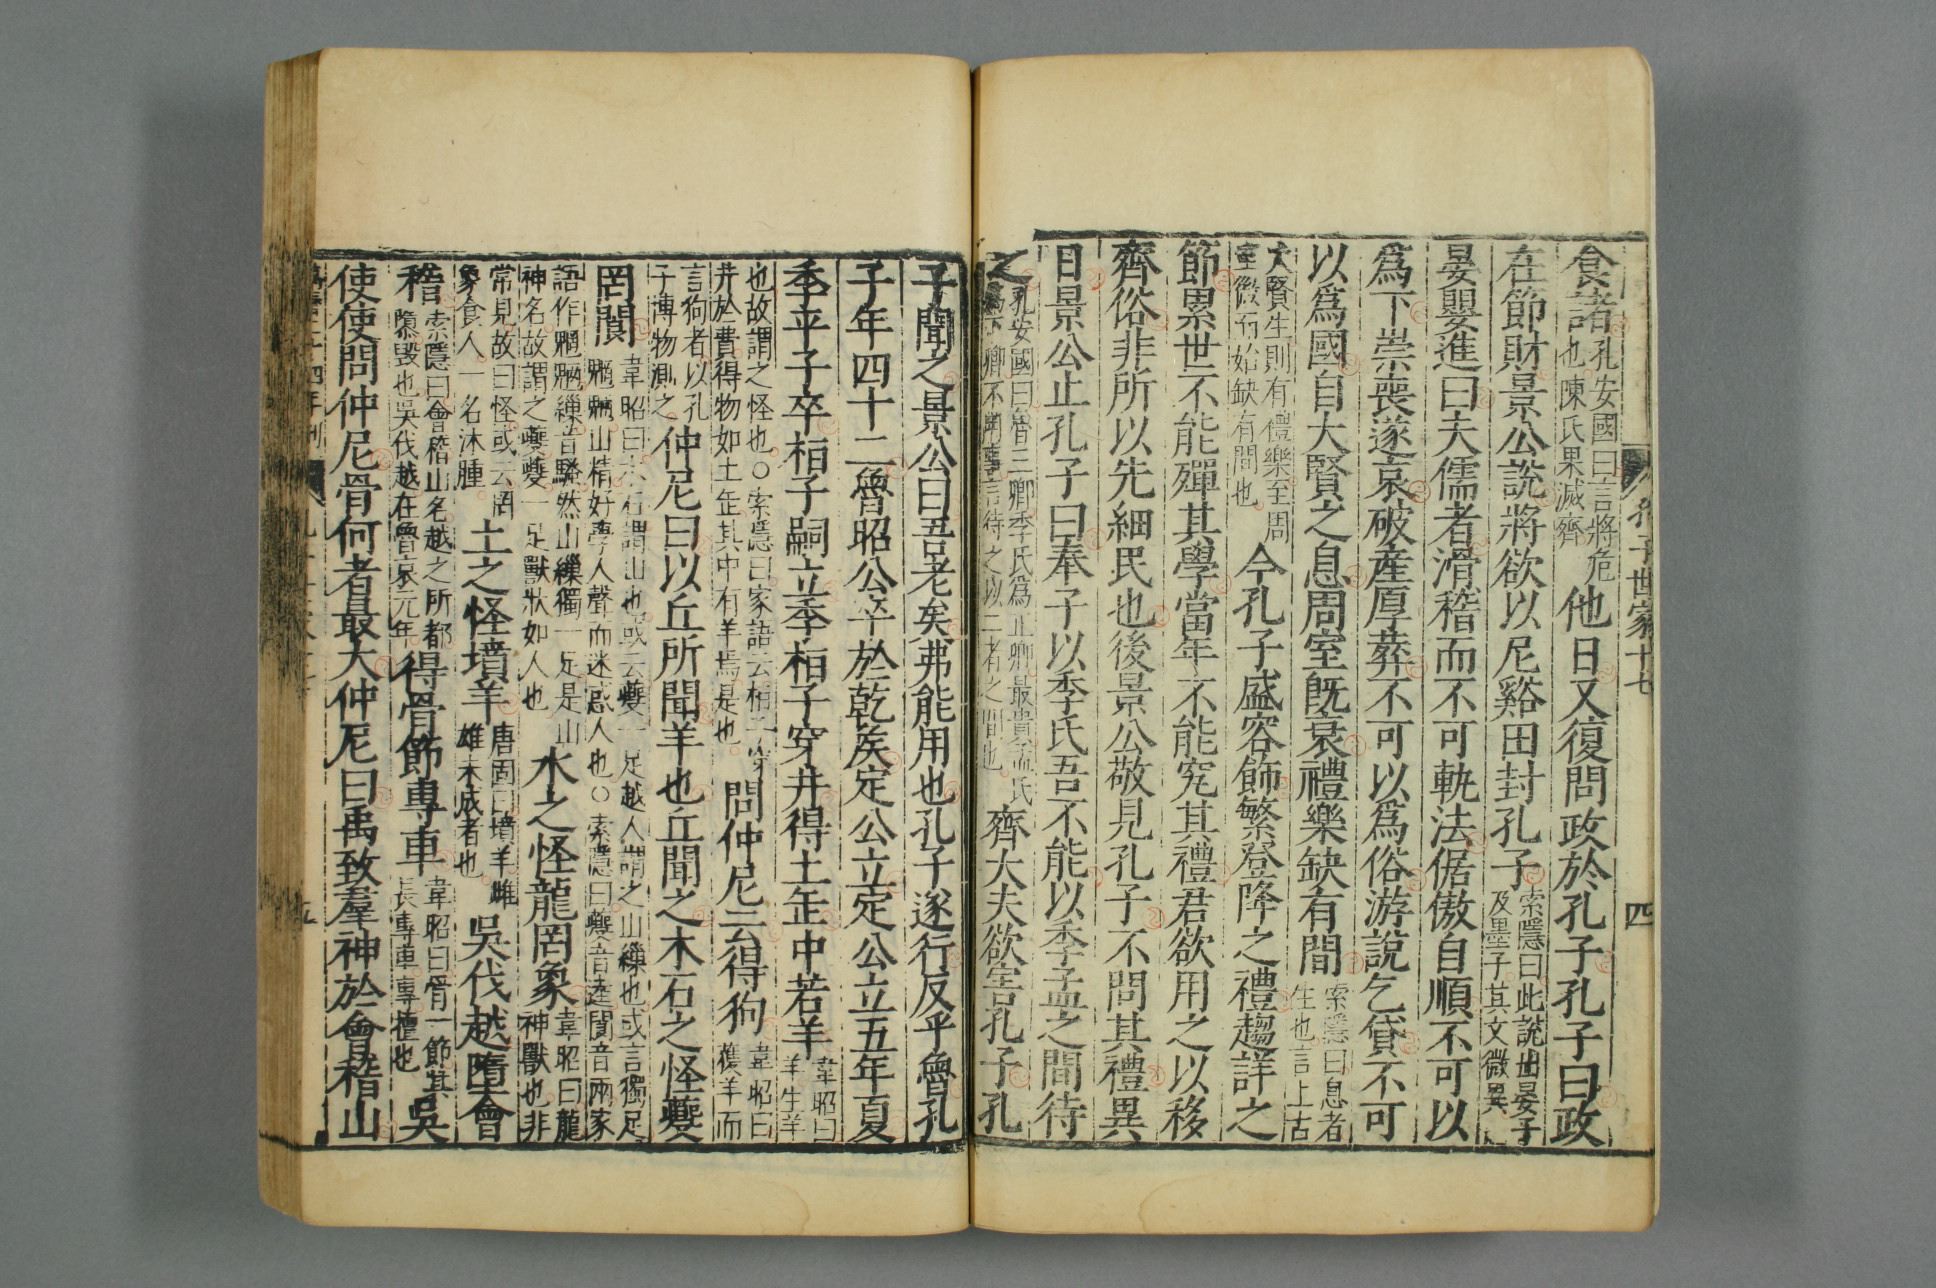 食諸孔安國曰言將危也陳氏果滅齊他日又復問政於孔子孔子曰政
在節財景公說將欲以尼谿田封孔子索隱曰此說出晏子及墨子其文微異
晏嬰進曰夫儒者滑稽而不可軌法倨傲自順不可以
爲下崇喪遂哀破產厚葬不可以爲俗游說乞貸不可
以爲國自大賢之息周室旣衰禮樂缺有間索隱曰息者生也言上古
大賢生則有禮樂至周室微而始缺有間也今孔子盛容飾繁登降之禮趨詳之
節累世不能殫其學當年不能究其禮君欲用之以移
齊俗非所以先細民也後景公敬見孔子不問其禮異
日景公止孔子曰奉子以季氏吾不能以季孟之間待
之孔安國曰魯三卿季氏爲正卿最貴孟氏爲下卿不用事言待之以二者之間也齊大夫欲害孔子孔
孔子世家十七
四
子聞之景公曰吾老矣弗能用也孔子遂行反乎魯孔
子年四十二魯昭公卒於乾矦定公立定公立五年夏
季平子卒桓子嗣立季桓子穿井得土缶中若羊韋昭曰羊生羊
也故謂之怪也○索隱曰家語云桓子穿井於費得物如土缶其中有羊焉是也問仲尼云得狗韋昭曰獲羊而
言狗者以孔子博物測之仲尼曰以丘所聞羊也丘聞之木石之怪夔
罔閬韋昭曰木石謂山也或云夔一足越人謂之山繅也或言獨足魍魎山精好學人聲而迷惑人也○索隱曰夔音逵閬音兩家
語作魍魎繅音騷然山繅獨一足是山神名故謂之夔夔一足獸狀如人也水之怪龍罔象韋昭曰龍神獸也非
常見故曰怪或云罔象食人一名沐腫土之怪墳羊唐固曰墳羊雌雄未成者也吳伐越隳會
稽索隱曰會稽山名越之所都隳毀也吳伐越在魯哀元年得骨節專車韋昭曰骨一節其長專車專擅也吳
使使問仲尼骨何者最大仲尼曰禹致羣神於會稽山
五